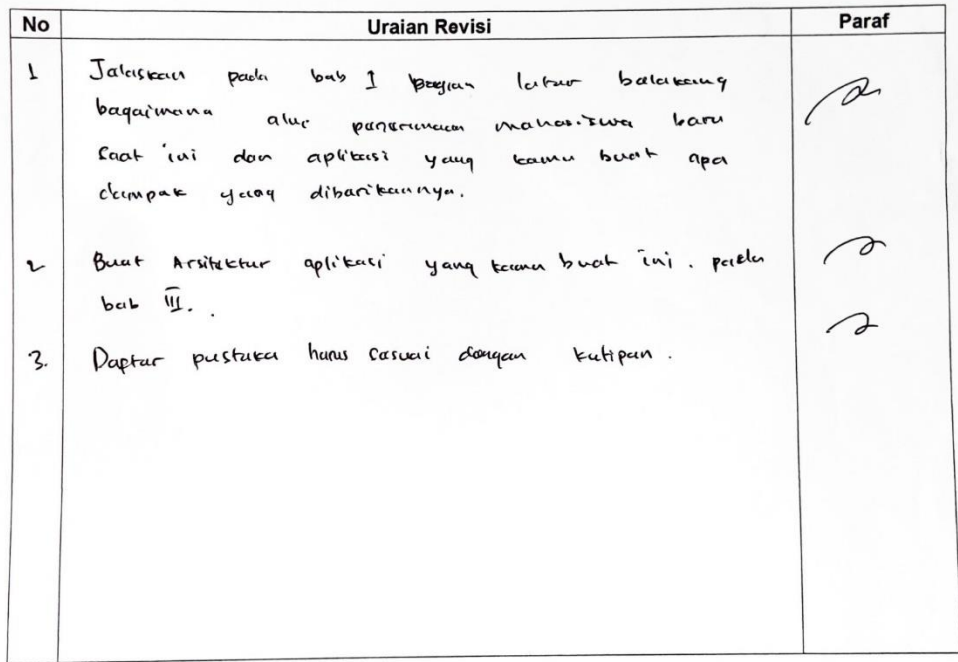 No Uraian Revisi Paraf
1 Jelaskan pada bab I bagian latar belakang
bagaimana alur penerimaan mahasiswa baru
saat ini dan aplikasi yang kamu buat apa
dampak yang diberikannya.
2 Buat Arsitektur aplikasi yang kamu buat ini. pada
bab III.
3. Daftar pustaka harus sesuai dengan kutipan.